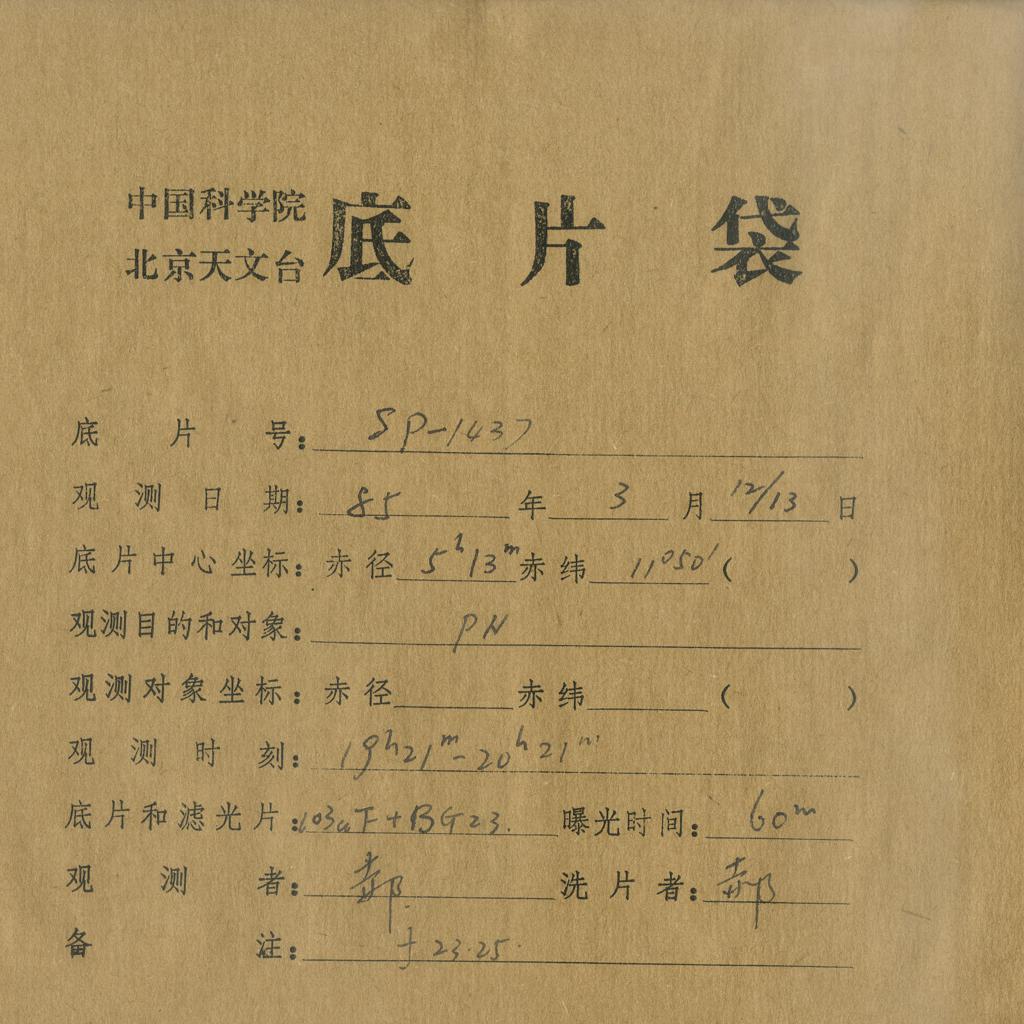 中国科学院
北京天文台 底片袋
底片号：SP-1437
观测日期：85年3月12/13日
底片中心坐标：赤径5h13m赤纬11°50′( )
观测目的和对象：PN
观测对象坐标：赤径 赤纬 ( )
观测时刻：19h21m-20h21m
底片和滤光片：103aF+BG23. 曝光时间：60m
观测者：郝 洗片者：郝
备注：f 23.25.